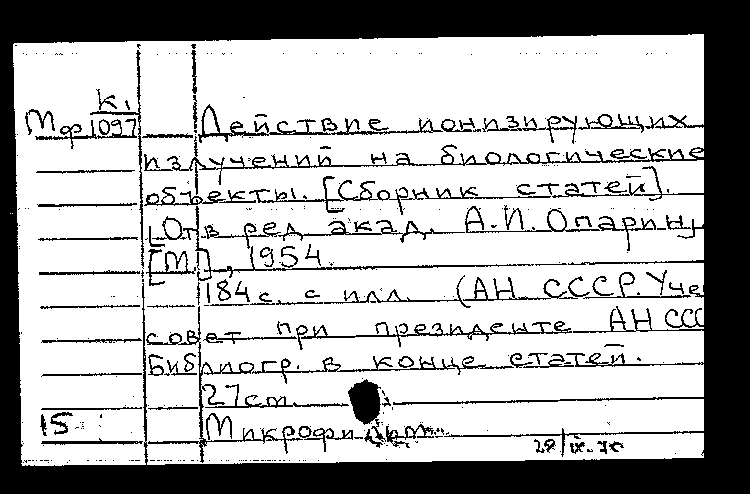 К1
Мф 1097 Действие ионизирующих
излучений на биологические
объекты. [Сборник статей].
[Отв ред акад. А.И. Опарин]
[М.], 1954.
184 с. с илл. (АН СССР. Уче
совет при президенте АН ССС
Библиогр. в конце статей.
27 см.
15 Микрофильм